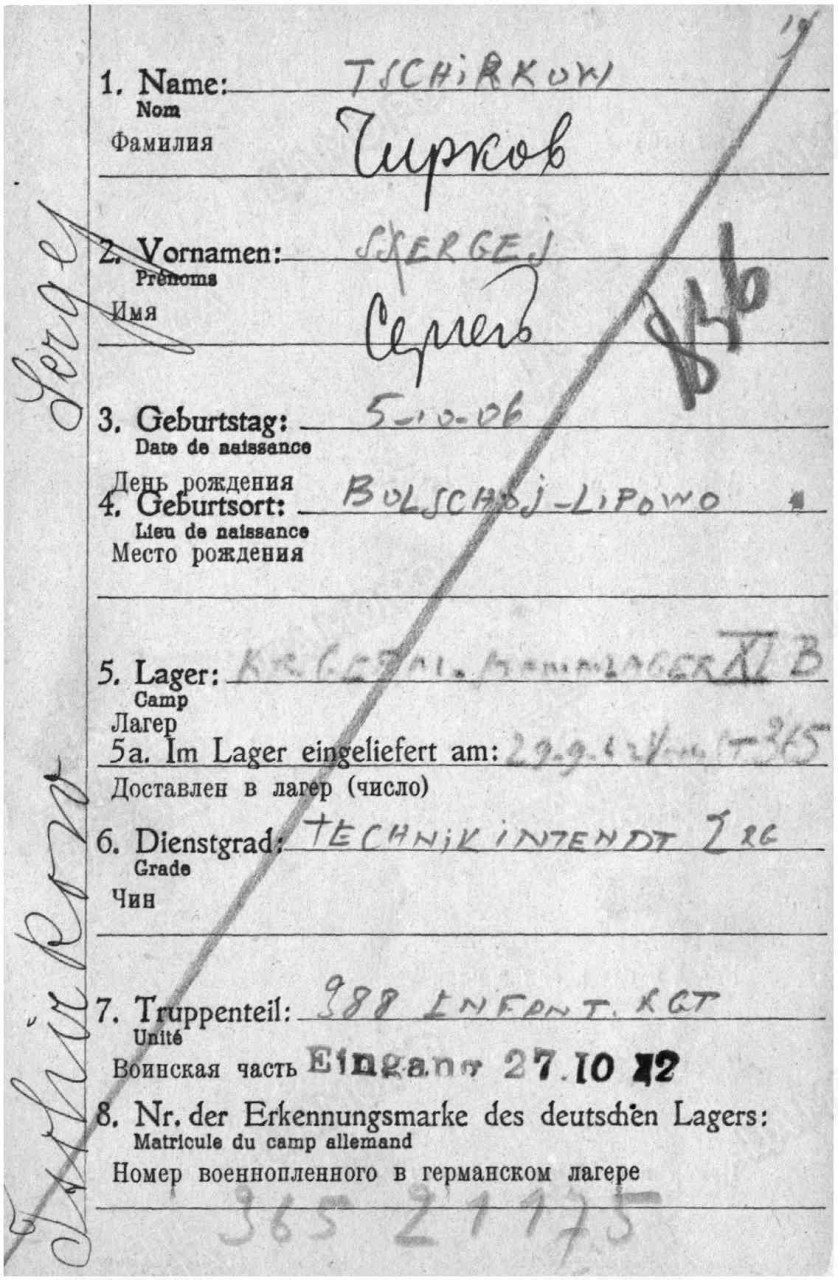 1. Name: TSCHIRKOW
Nom
Фамилия
Чирков
2. Vornamen: SSERGEJ
Prénoms
Имя
Сергей
3. Geburtstag: 5-10-06
Date de naissance
День рождения
4. Geburtsort: BOLSCHOJ-LIPOWO
Lieu de naissance
Место рождения
5. Lager: XI B
Camp
Лагерь
5a. Im Lager eingeliefert am: 29.9.42 365
Доставлен в лагерь (число)
6. Dienstgrad: TECHNIKINTENDT I RG
Grade
Чин
7. Truppenteil: 988 INFANT. RGT
Unité
Воинская часть Eingang 27.10 42
8. Nr. der Erkennungsmarke des deutschen Lagers:
Matricule du camp allemand
Номер военнопленного в германском лагере
365 21175
Tschirkow Sergej
836